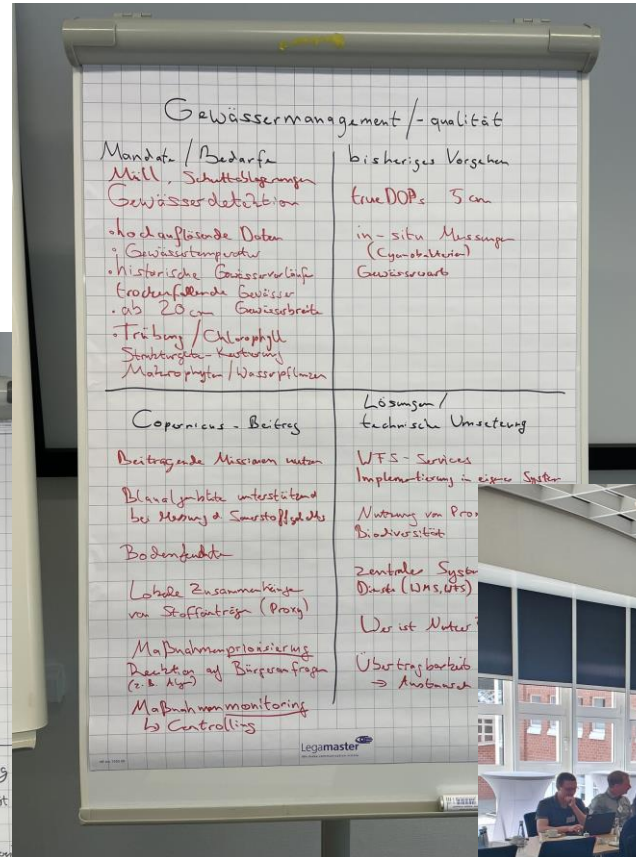 Gewässermanagement/-qualität
Mandate/Bedarfe
Müll, Schuttablagerungen
Gewässerdetektion
• hochauflösende Daten
• Gewässertemperatur
• historische Gewässerverläufe
trockenfallende Gewässer
• ab 20 cm Gewässerbreite
• Trübung/Chlorophyll
Strukturgüte-Kartierung
Makrophyten/Wasserpflanzen
bisheriges Vorgehen
trueDOPs 5 cm
in-situ Messungen
(Cyanobakterien)
Gewässerwart
Copernicus-Beitrag
Beitragende Missionen nutzen
unterstützend
bei Messung d. Sauerstoffgehalts
Bodenfeuchte
Lokale Zusammenhänge
von Stoffeinträgen (Proxy)
Maßnahmenpriorisierung
Reaktion auf Bürgeranfragen
(z.B. Algen)
Maßnahmenmonitoring
↳ Controlling
Lösungen/
technische Umsetzung
WFS-Services
Implementierung in eigene System
Nutzung von Prox
Biodiversität
zentrales System
Dienste (WMS, WFS)
Wer ist Nutzer?
Übertragbarkeit
→ Austausch
Legamaster